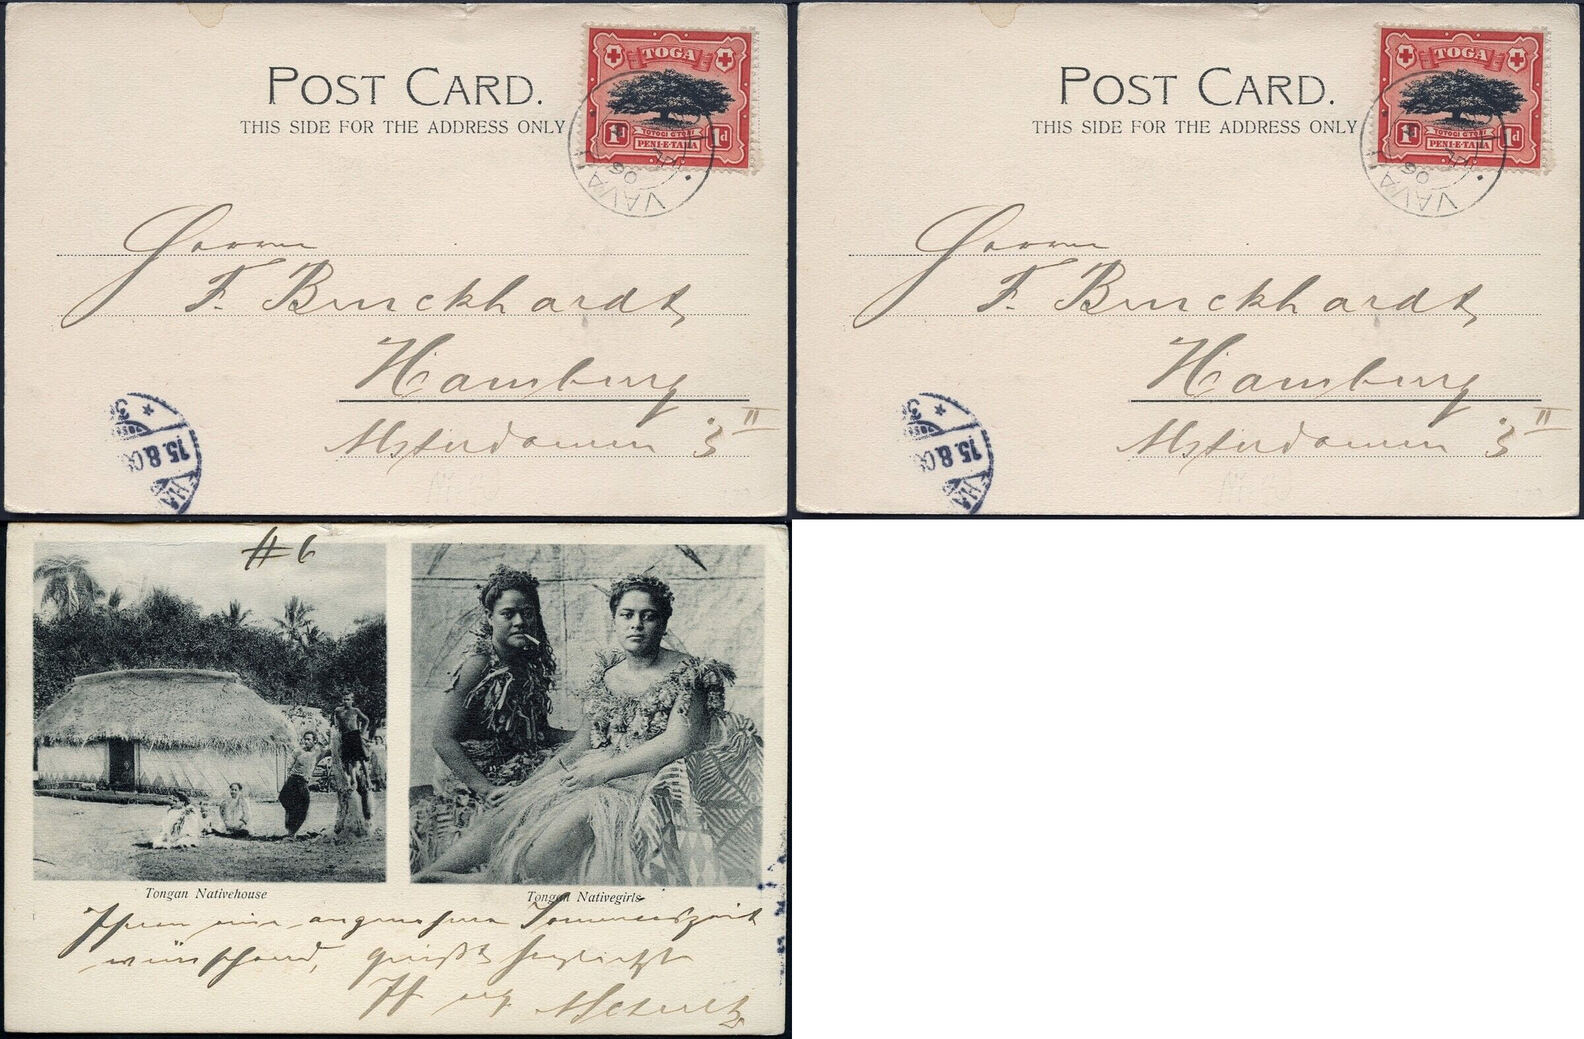 POST CARD.
THIS SIDE FOR THE ADDRESS ONLY
TOGA
1d 1d
PENI-E-TAHA
VAVAU
06
Herrn
F. Burckhardt,
Hamburg
Alsterdamm 3 II
15.8.06
HA
POST CARD.
THIS SIDE FOR THE ADDRESS ONLY
TOGA
1d 1d
PENI-E-TAHA
VAVAU
06
Herrn
F. Burckhardt,
Hamburg
Alsterdamm 3 II
15.8.06
HA
#6
Tongan Nativehouse
Tongan Nativegirls
Ihnen eine angenehme Sommerszeit
wünschend, grüsst herzlichst